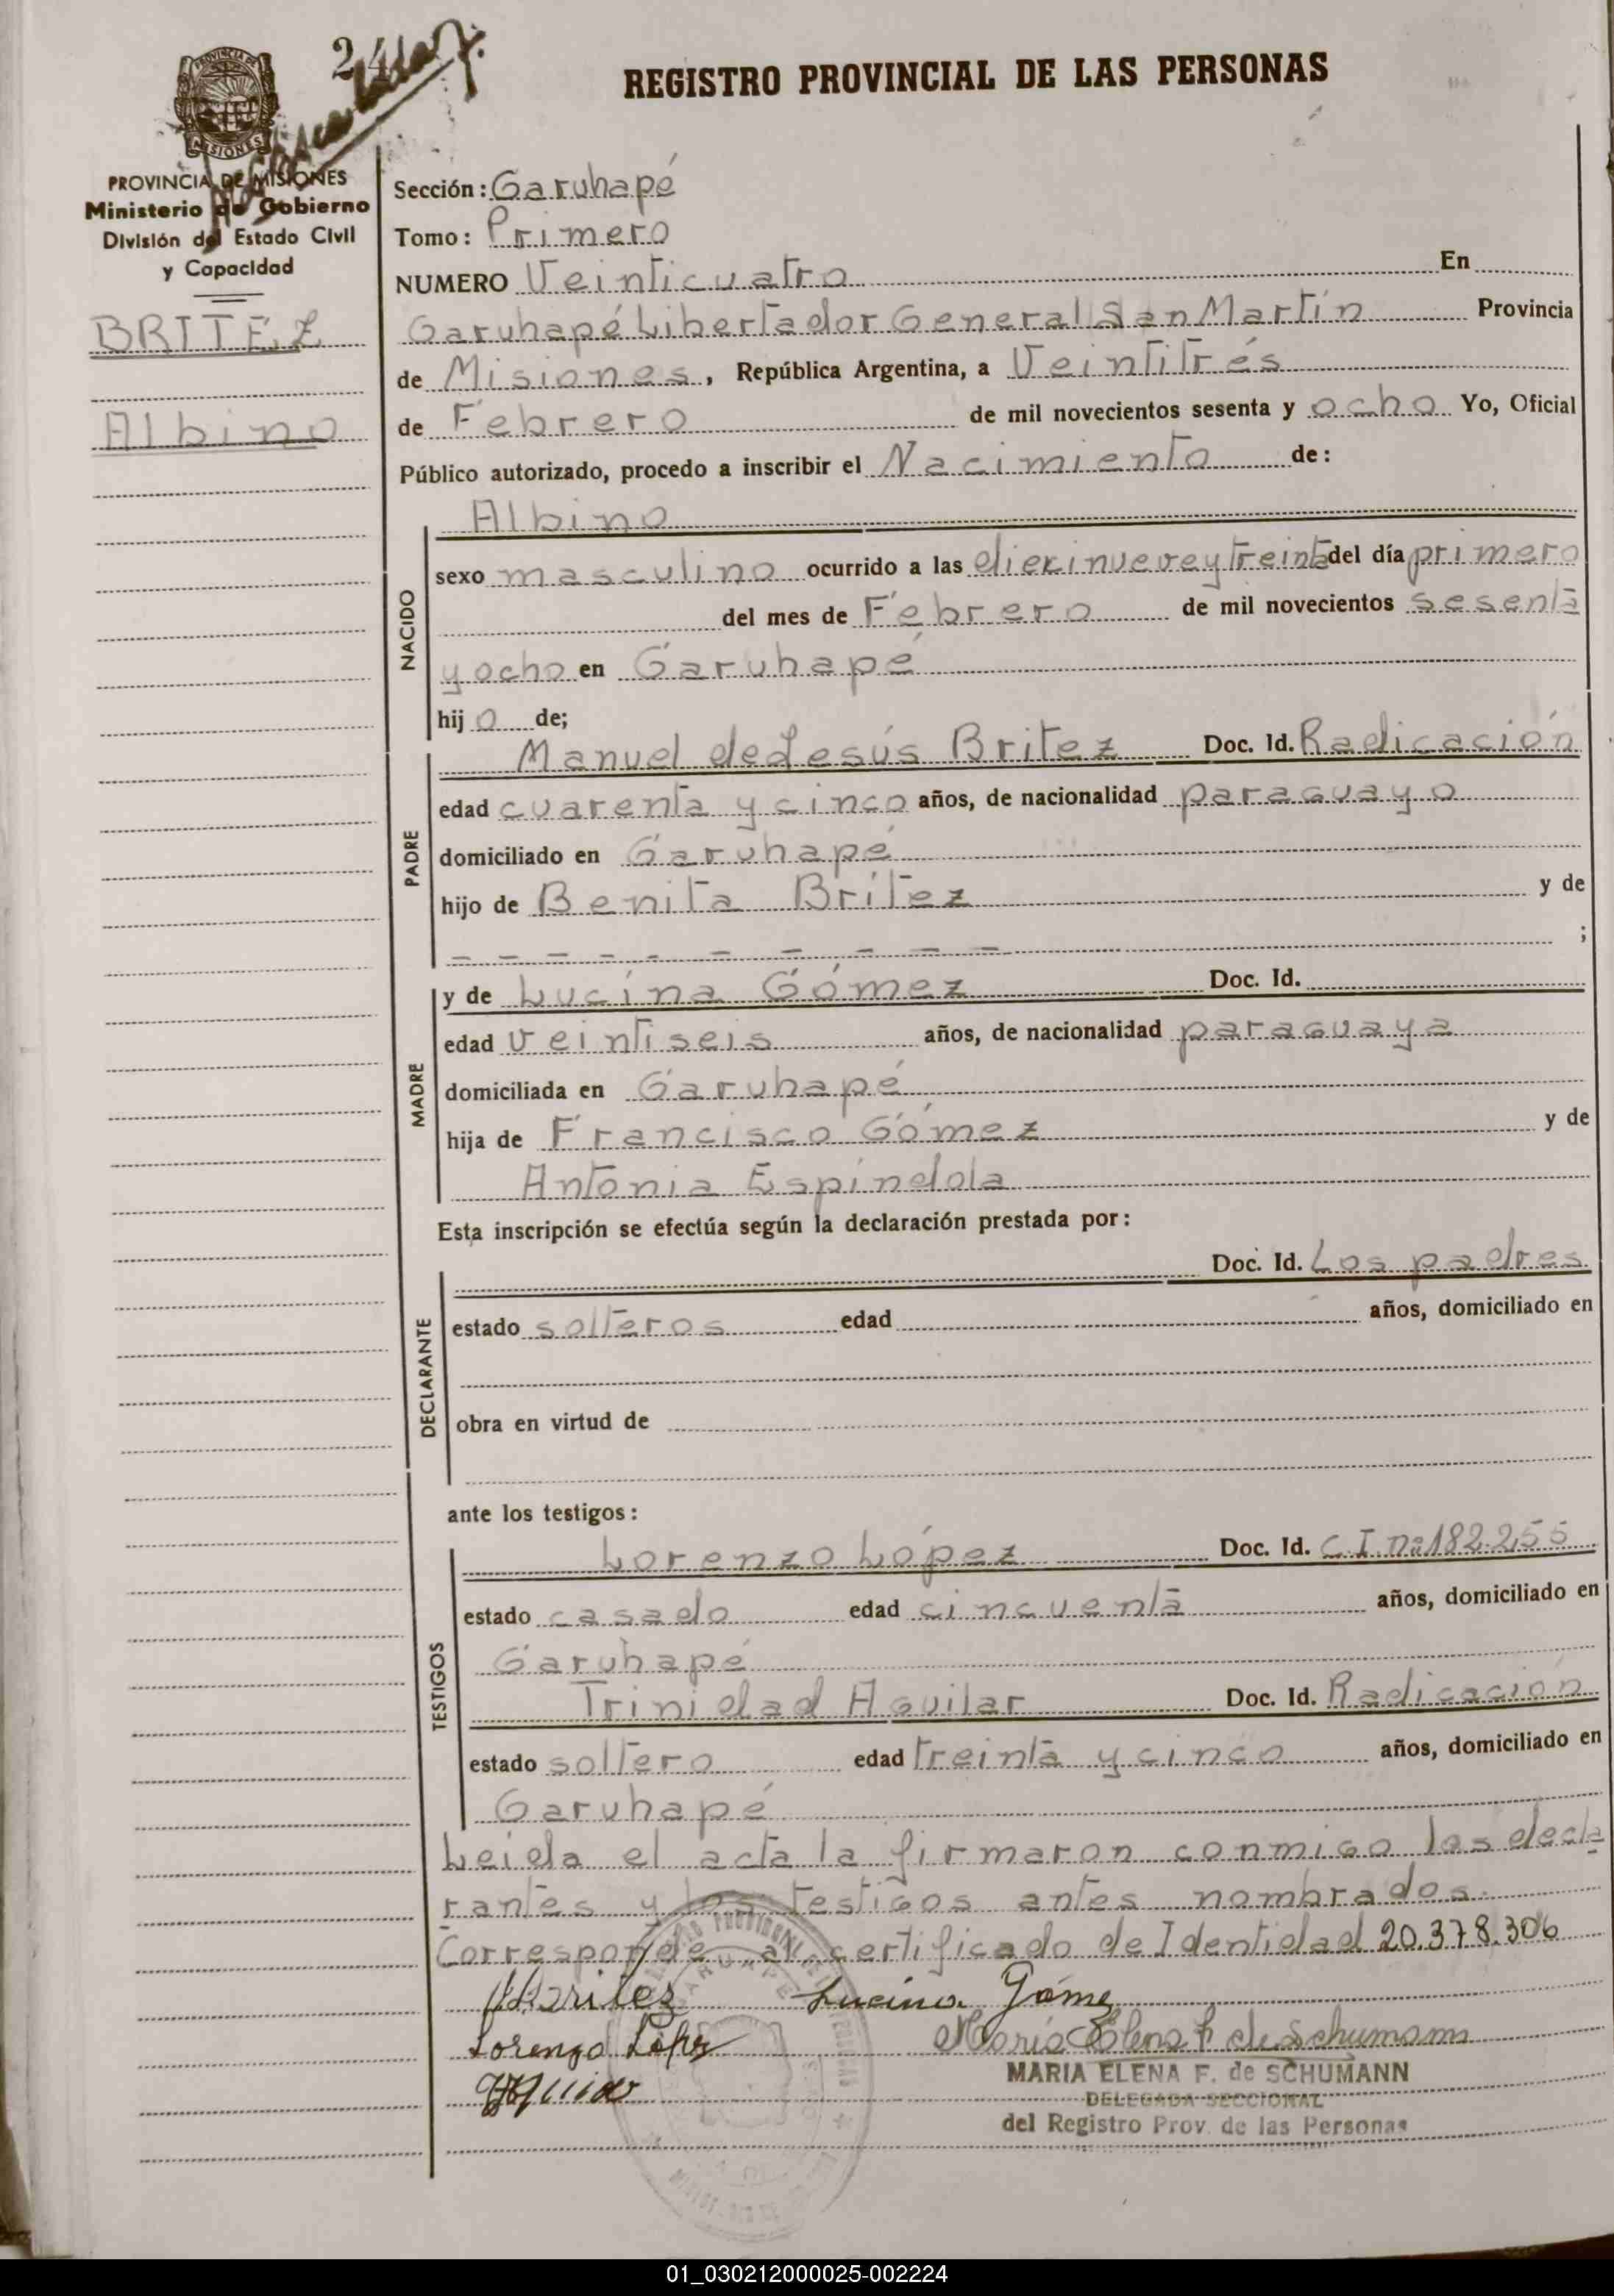 24
REGISTRO PROVINCIAL DE LAS PERSONAS
PROVINCIA DE MISIONES
Ministerio de Gobierno
División del Estado Civil
y Capacidad
BRITEZ
Albino
Sección: Garuhapé
Tomo: Primero
NUMERO Veinticuatro En
Garuhapé Libertador General San Martín Provincia
de Misiones, República Argentina, a Veintitrés
de Febrero de mil novecientos sesenta y ocho Yo, Oficial
Público autorizado, procedo a inscribir el Nacimiento de:
NACIDO
Albino
sexo masculino ocurrido a las diecinueve y treinta del día primero
del mes de Febrero de mil novecientos sesenta
y ocho en Garuhapé
hijo de;
PADRE
Manuel de Jesús Britez Doc. Id. Radicación
edad cuarenta y cinco años, de nacionalidad paraguayo
domiciliado en Garuhapé
hijo de Benita Britez y de
— — — — — — — — — — ;
MADRE
y de Lucína Gómez Doc. Id.
edad veintiseis años, de nacionalidad paraguaya
domiciliada en Garuhapé
hija de Francisco Gómez y de
Antonia Espíndola
Esta inscripción se efectúa según la declaración prestada por:
DECLARANTE
Doc. Id. Los padres
estado solteros edad años, domiciliado en
obra en virtud de
ante los testigos:
TESTIGOS
Lorenzo López Doc. Id. C.I. nº 182.255
estado casado edad cincuenta años, domiciliado en
Garuhapé
Trinidad Aguilar Doc. Id. Radicación
estado soltero edad treinta y cinco años, domiciliado en
Garuhapé
Leida el acta la firmaron conmigo los decla-
rantes y los testigos antes nombrados.
Corresponde al certificado de Identidad 20.378.306
Britez Lucina Gómez
Lorenzo López María Elena F. de Schumann
MARIA ELENA F. de SCHUMANN
DELEGADA SECCIONAL
del Registro Prov. de las Personas
01_030212000025-002224